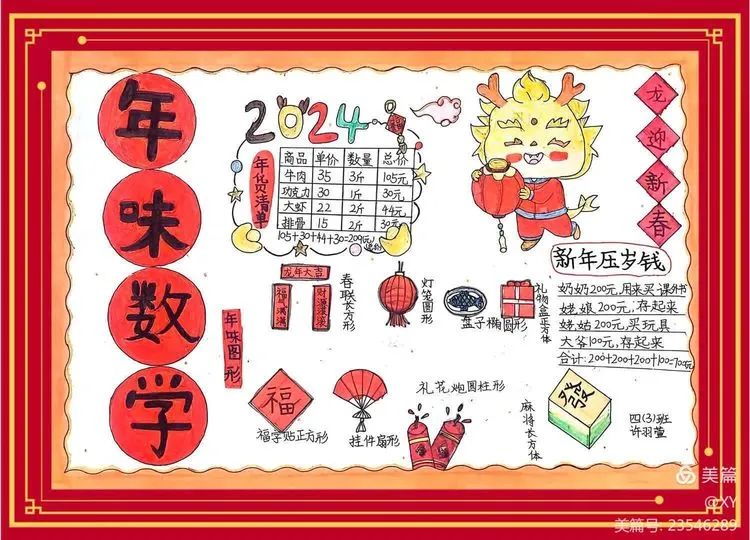 年味数学
2024
年货清单
商品 单价 数量 总价
牛肉 35 3斤 105元
巧克力 30 1斤 30元
大虾 22 2斤 44元
排骨 15 2斤 30元
105+30+44+30=209(元)
龙迎新春
新年压岁钱
奶奶200元,用来买课外书
姥娘200元,存起来
姥姑200元,买玩具
大爷100元,存起来
合计:200+200+200+100=700元
年味图形
龙年大吉
福满满
财滚滚
春联长方形
灯笼圆形
盘子椭圆形
礼物盒正方体
福
福字贴正方形
挂件扇形
礼花炮圆柱形
麻将长方体
發
四(3)班
许羽萱
美篇
@XY
美篇号: 23546289